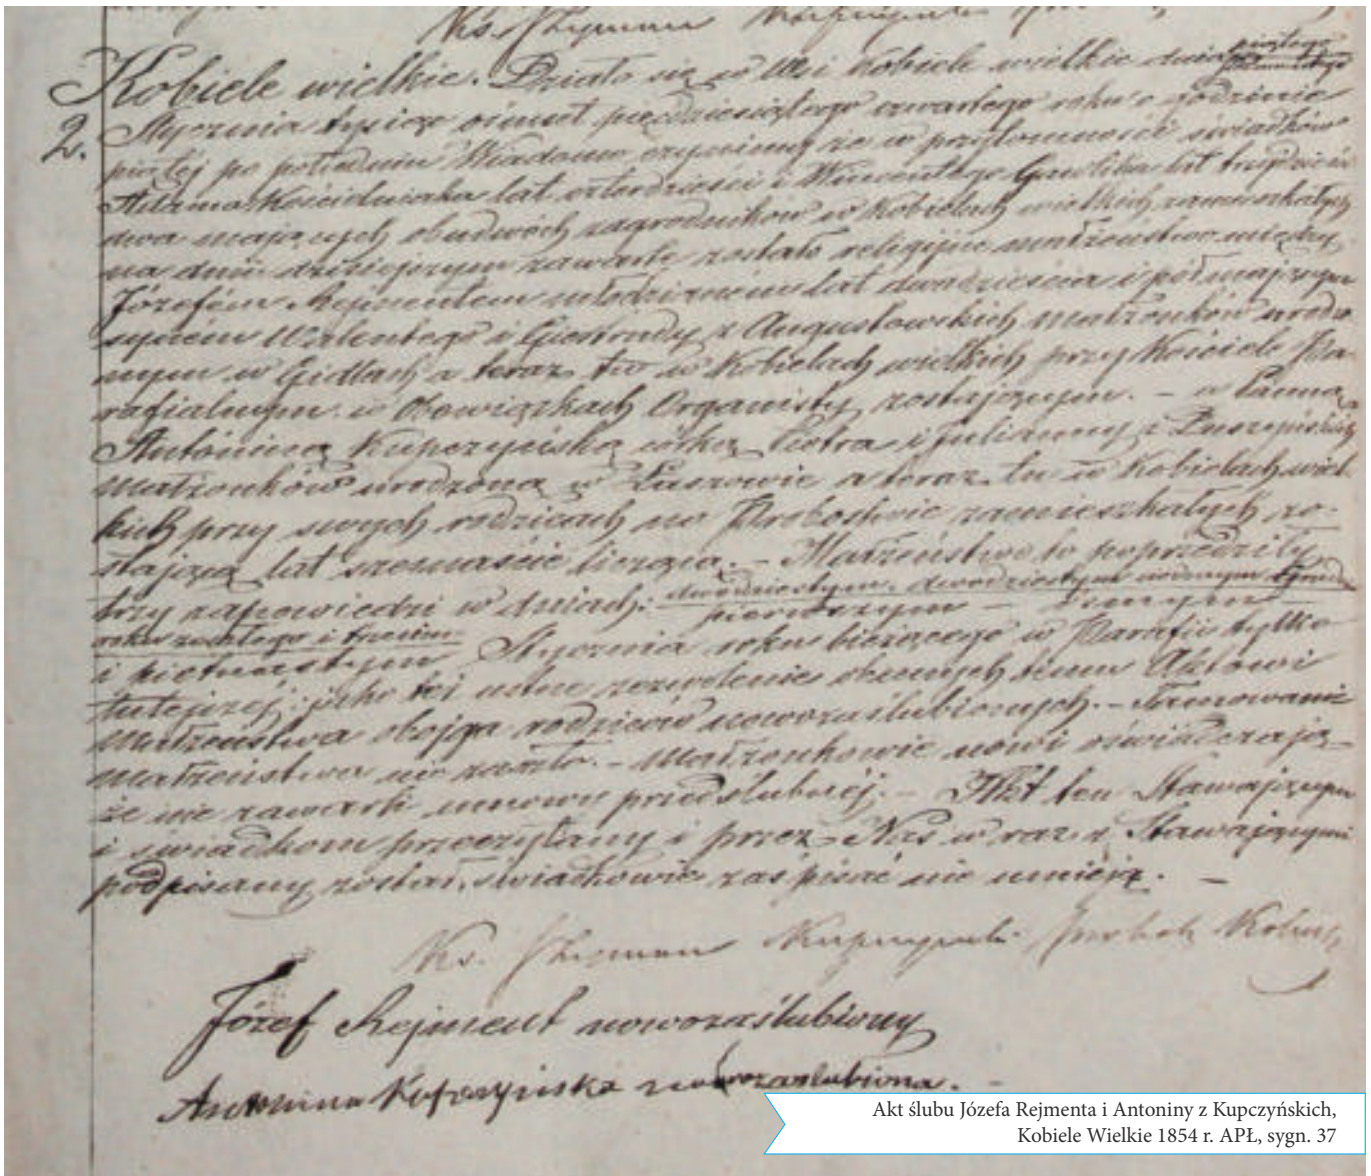 Ks. Szymon
Kobiele wielkie. Działo się w Wsi Kobiele wielkie dnia piątego
2. Stycznia tysiąc ośmset pięćdziesiątego czwartego roku o godzinie
piątej po południu Wiadomo czyniemy że w przytomności świadków
Adama lat czterdzieści i Wincentego Gawlika lat trzydzieści
dwa mających obudwóch zagrodników w Kobielach wielkich zamieszkałych
na dniu dzisiejszym zawarte zostało religijne małżeństwo między
Józefem Rejmentem młodzianem lat dwadzieścia i pół mającym
synem Walentego i Giertrudy z Augustowskich małżonków urodzo-
nym w Gidlach a teraz tu w Kobielach wielkich przy Kościele Pa-
rafialnym w obowiązkach Organisty zostającym. – a Panną
Antoniną Kupczyńską córką Piotra i Julianny z
Małżonków urodzoną w a teraz tu w Kobielach wiel-
kich przy swych rodzicach na Probostwie zamieszkałych zo-
stającą lat szesnaście liczącą. – Małżeństwo to poprzedziły
trzy zapowiedzi w dniach: dwudziestym dwudziestym
pierwszym –
roku zeszłego i
i piętnastym Stycznia roku bieżącego w Parafii tylko
tutejszej, jako też ustne zezwolenie obecnych temu Aktowi
Małżeństwa obojga rodziców nowozaślubionych. – Tamowanie
małżeństwa nie zaszło. – Małżonkowie nowi oświadczają
że nie zawarli umowy przedślubnéj. – Akt ten Stawającym
i świadkom przeczytany i przez Nas w raz z Stawającymi
podpisany został, świadkowie zaś pisać nie umieją. –
Ks. Szymon
Józef Rejment nowozaślubiony
Antonina Kupczyńska nowozaslubiona. –
Akt ślubu Józefa Rejmenta i Antoniny z Kupczyńskich,
Kobiele Wielkie 1854 r. APŁ, sygn. 37